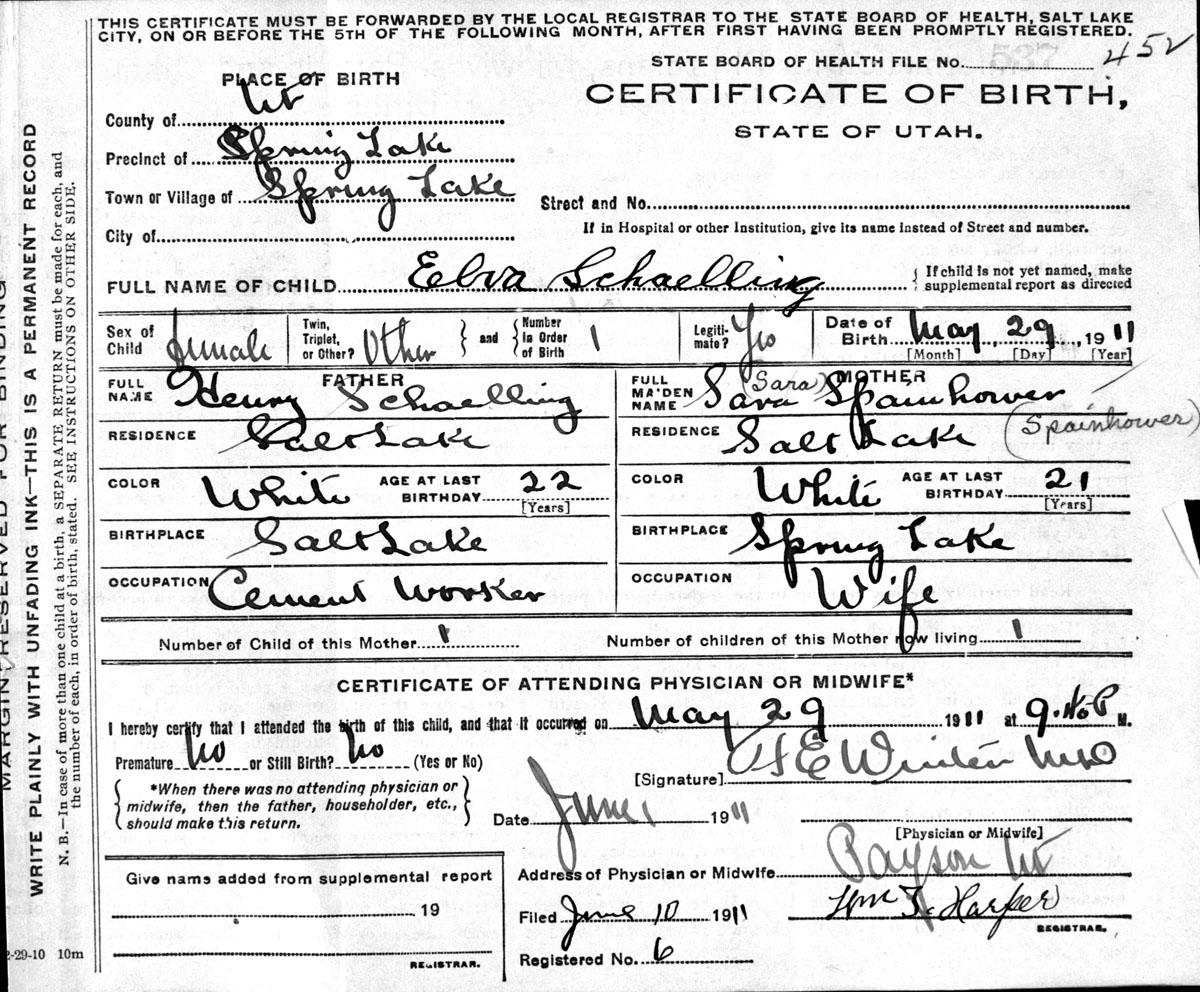 THIS CERTIFICATE MUST BE FORWARDED BY THE LOCAL REGISTRAR TO THE STATE BOARD OF HEALTH, SALT LAKE
CITY, ON OR BEFORE THE 5TH OF THE FOLLOWING MONTH, AFTER FIRST HAVING BEEN PROMPTLY REGISTERED.
STATE BOARD OF HEALTH FILE No. 452
PLACE OF BIRTH
CERTIFICATE OF BIRTH,
STATE OF UTAH.
County of Ut
Precinct of Spring Lake
Town or Village of Spring Lake
Street and No.
City of
If in Hospital or other Institution, give its name instead of Street and number.
FULL NAME OF CHILD Elva Schaelling
{ If child is not yet named, make
supplemental report as directed
Sex of Child Female
Twin, Triplet, or Other? Other } and { Number In Order of Birth 1
Legiti- mate? Yes
Date of Birth May 29, 1911
[Month] [Day] [Year]
FATHER
FULL NAME Henry Schaelling
RESIDENCE Salt Lake
COLOR White AGE AT LAST BIRTHDAY 22
[Years]
BIRTHPLACE Salt Lake
OCCUPATION Cement Worker
MOTHER
FULL MAIDEN NAME Sara (Sara) Spainhower
(Spainhower)
RESIDENCE Salt Lake
COLOR White AGE AT LAST BIRTHDAY 21
[Years]
BIRTHPLACE Spring Lake
OCCUPATION Wife
Number of Child of this Mother 1 Number of children of this Mother now living 1
CERTIFICATE OF ATTENDING PHYSICIAN OR MIDWIFE*
I hereby certify that I attended the birth of this child, and that it occurred on May 29 1911 at 9. P M.
Premature No or Still Birth? No (Yes or No)
[Signature] E Winter MD
*When there was no attending physician or
midwife, then the father, householder, etc.,
should make this return.
Date June 1 1911
[Physician or Midwife]
Address of Physician or Midwife Payson Ut
Give name added from supplemental report
19
REGISTRAR.
Filed June 10 1911 Wm T. Harper
REGISTRAR.
Registered No. 6
2-29-10 10m
MARGIN RESERVED FOR BINDING
WRITE PLAINLY WITH UNFADING INK—THIS IS A PERMANENT RECORD
N. B.—In case of more than one child at a birth, a SEPARATE RETURN must be made for each, and
the number of each, in order of birth, stated. SEE INSTRUCTIONS ON OTHER SIDE.